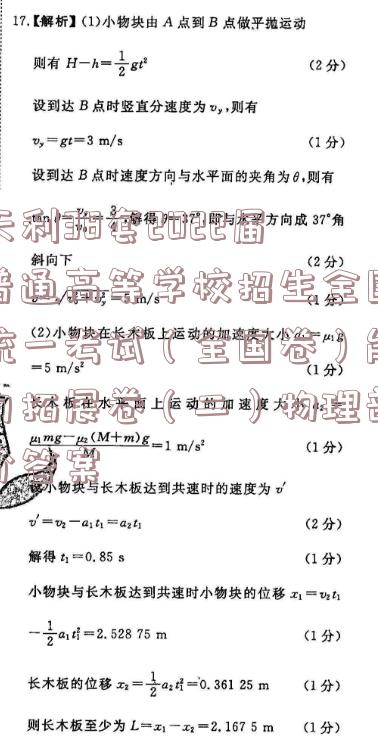 17.【解析】(1)小物块由 A 点到 B 点做平抛运动
则有 H－h＝1/2 gt² (2分)
设到达 B 点时竖直分速度为 v_y,则有
v_y＝gt＝3 m/s (1分)
设到达 B 点时速度方向与水平面的夹角为 θ,则有
tan θ＝v_y/v₀＝3/4,解得 θ＝37°,即与水平方向成 37°角
天利38套2022届
斜向下 (2分)
普通高等学校招生全国
＝5 m/s (1分)
(2)小物块在长木板上运动的加速度大小 a₁＝μ₁g
统一考试(全国卷)
＝5 m/s² (1分)
长木板在水平面上运动的加速度大小
拓展卷(二)物理
μ₁mg－μ₂(M＋m)g/M＝1 m/s² (1分)
答案
设小物块与长木板达到共速时的速度为 v′
v′＝v₂－a₁t₁＝a₂t₁ (2分)
解得 t₁＝0.85 s (1分)
小物块与长木板达到共速时小物块的位移 x₁＝v₂t₁
－1/2 a₁t₁²＝2.528 75 m (1分)
长木板的位移 x₂＝1/2 a₂t₁²＝0.361 25 m (1分)
则长木板至少为 L＝x₁－x₂＝2.167 5 m (1分)